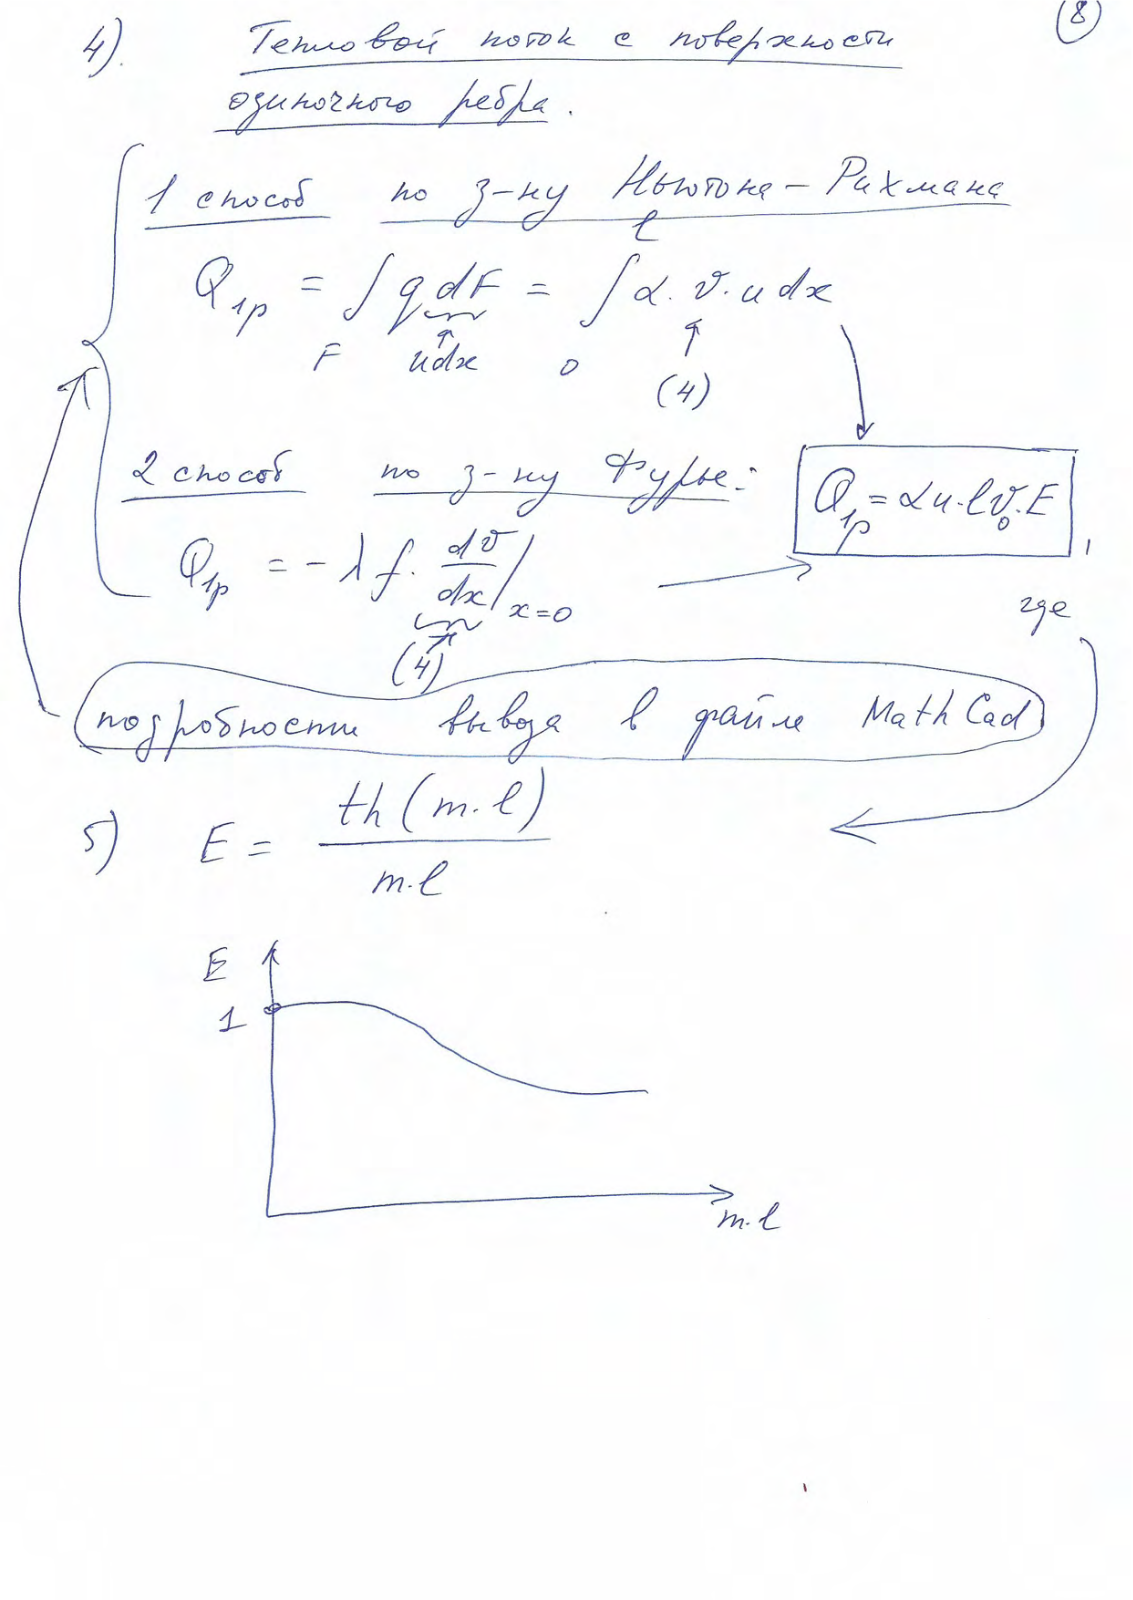 8
4). Тепловой поток с поверхности
одиночного ребра.
1 способ по з-ну Ньютона – Рихмана
Q₁ₚ = ∫ q dF = ∫ α · ϑ · u dx
F udx 0 l
(4)
2 способ по з-ну Фурье:
Q₁ₚ = αu·lϑ₀·E ,
Q₁ₚ = − λ f · dϑ/dx |x=0
(4)
где
подробности вывода в файле MathCad
5) E = th(m·l) / m·l
E
1
m·l